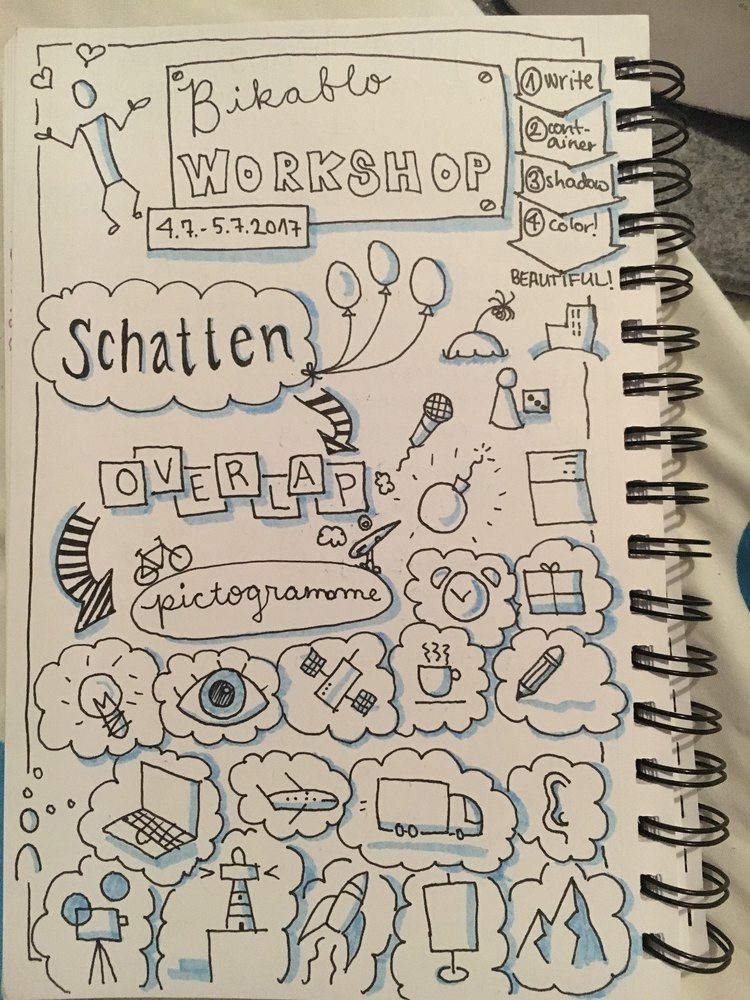 Bikablo
WORKSHOP
4.7.-5.7.2017
① write
② cont-
ainer
③ shadow
④ color!
BEAUTIFUL!
Schatten
OVERLAP
pictogramme